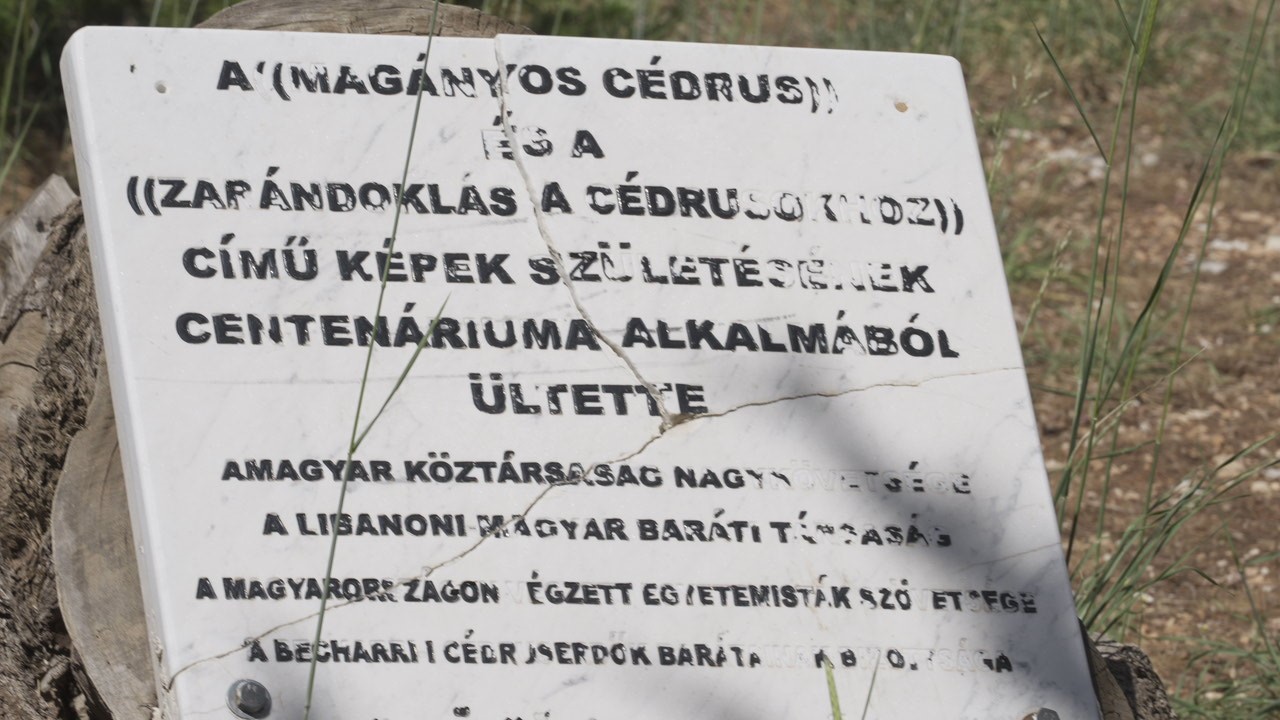 A ((MAGÁNYOS CÉDRUS))
ÉS A
((ZARÁNDOKLÁS A CÉDRUSOKHOZ))
CÍMŰ KÉPEK SZÜLETÉSÉNEK
CENTENÁRIUMA ALKALMÁBÓL
ÜLTETTE
AMAGYAR KÖZTÁRSASAG NAGYKÖVETSÉGE
A LIBANONI-MAGYAR BARÁTI TÁRSASÁG
A MAGYARORSZAGON VÉGZETT EGYETEMISTÁK SZÖVETSÉGE
A BECHARRI I CÉDRUSERDŐK BARÁTAINAK BIZOTTSÁGA